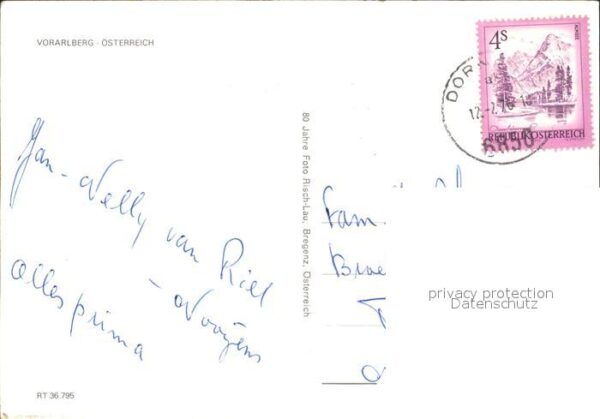 VORARLBERG - ÖSTERREICH
Jan - Nelly van Riel
- Nooijens
alles prima
RT 36.795
80 Jahre Foto Risch-Lau, Bregenz, Österreich
4 S
ALMSEE
REPUBLIK ÖSTERREICH
DOR
6850
Fam.
privacy protection
Datenschutz